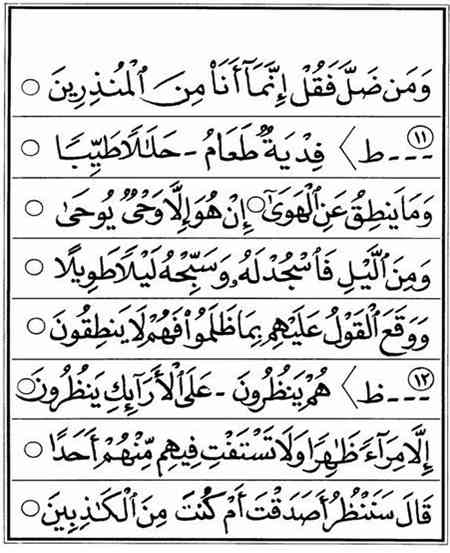 وَمَن ضَلَّ فَقُلْ إِنَّمَآ أَنَا۠ مِنَ ٱلْمُنذِرِينَ ○
١١ --- ط ⟩ فِدْيَةٌ طَعَامُ - حَلَٰلًا طَيِّبًا ○
وَمَا يَنطِقُ عَنِ ٱلْهَوَىٰٓ ○ إِنْ هُوَ إِلَّا وَحْىٌ يُوحَىٰ ○
وَمِنَ ٱلَّيْلِ فَٱسْجُدْ لَهُۥ وَسَبِّحْهُ لَيْلًا طَوِيلًا ○
وَوَقَعَ ٱلْقَوْلُ عَلَيْهِم بِمَا ظَلَمُوا۟ فَهُمْ لَا يَنطِقُونَ ○
١٢ --- ظ ⟩ هُمْ يَنظُرُونَ - عَلَى ٱلْأَرَآئِكِ يَنظُرُونَ ○
إِلَّا مِرَآءً ظَٰهِرًا وَلَا تَسْتَفْتِ فِيهِم مِّنْهُمْ أَحَدًا ○
قَالَ سَنَنظُرُ أَصَدَقْتَ أَمْ كُنتَ مِنَ ٱلْكَٰذِبِينَ ○